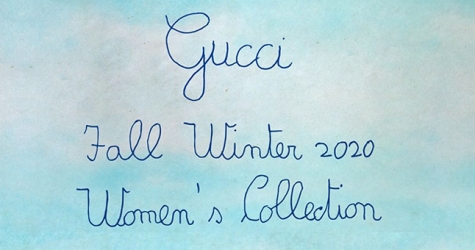 Gucci
Fall Winter 2020
Women's Collection